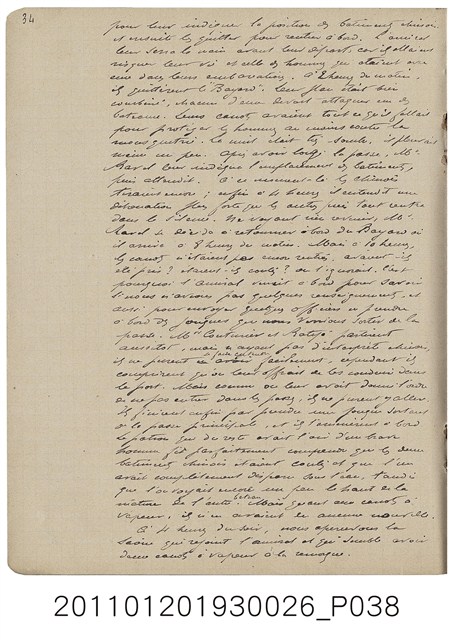 34
pour leur indiquer la position des bâtiments chinois
et ensuite les quitter pour rentrer à bord. L'amiral
leur serra la main avant leur départ, car ils allaient
risquer leur vie et celle des hommes qui étaient avec
eux dans leurs embarcations. A 2 heures du matin,
ils quittèrent le Bayard. Leur plan était bien
combiné, chacun d'eux devait attaquer un des
bateaux. Leurs canots avaient tout ce qu'il fallait
pour protéger les hommes au moins contre la
mousqueterie. La nuit était très sombre, il pleuvait
même un peu. Après avoir longé la passe, Mr
Ravel leur indiqua l'emplacement des bâtiments,
puis attendit. A ce moment-là les chinois
tiraient encore; enfin à 4 heures il entendit une
détonation plus forte que les autres, puis tout rentra
dans le silence. Ne voyant rien revenir, Mr
Ravel se décida à retourner à bord du Bayard où
il arriva à 8 heures du matin. Mais à 10 heures,
les canots n'étaient pas encore rentrés, avaient-ils
été pris? étaient-ils coulés? on l'ignorait. C'est
pourquoi l'amiral envoit à bord pour savoir
si nous n'avions pas quelques renseignements, et
aussi pour envoyer quelques officiers en prendre
à bord des jonques que nous verrions sortir de la
passe. Mrs Couturier et partirent
aussitôt, mais n'ayant pas d'interprète chinois,
ils ne purent se faire comprendre facilement, cependant ils
comprirent qu'on leur offrait de les conduire dans
le port. Mais comme on leur avait donné l'ordre
de ne pas entrer dans les passes, ils ne purent y aller.
Ils finirent enfin par prendre une jonque sortant
de la passe principale, et ils l'amenèrent à bord
le patron qui du reste avait l'air d'un brave
homme fit parfaitement comprendre que les deux
bâtiments chinois étaient coulés et que l'un
avait complètement disparu sous l'eau, tandis
que l'on voyait encore un peu le haut de la
mâture de l'autre bateau. Mais quant aux canots à
vapeur, ils n'en avaient eu aucune nouvelle.
A 4 heures du soir, nous apercevons la
Saône qui rejoint l'amiral et qui semble avoir
deux canots à vapeur à la remorque.
201101201930026_P038